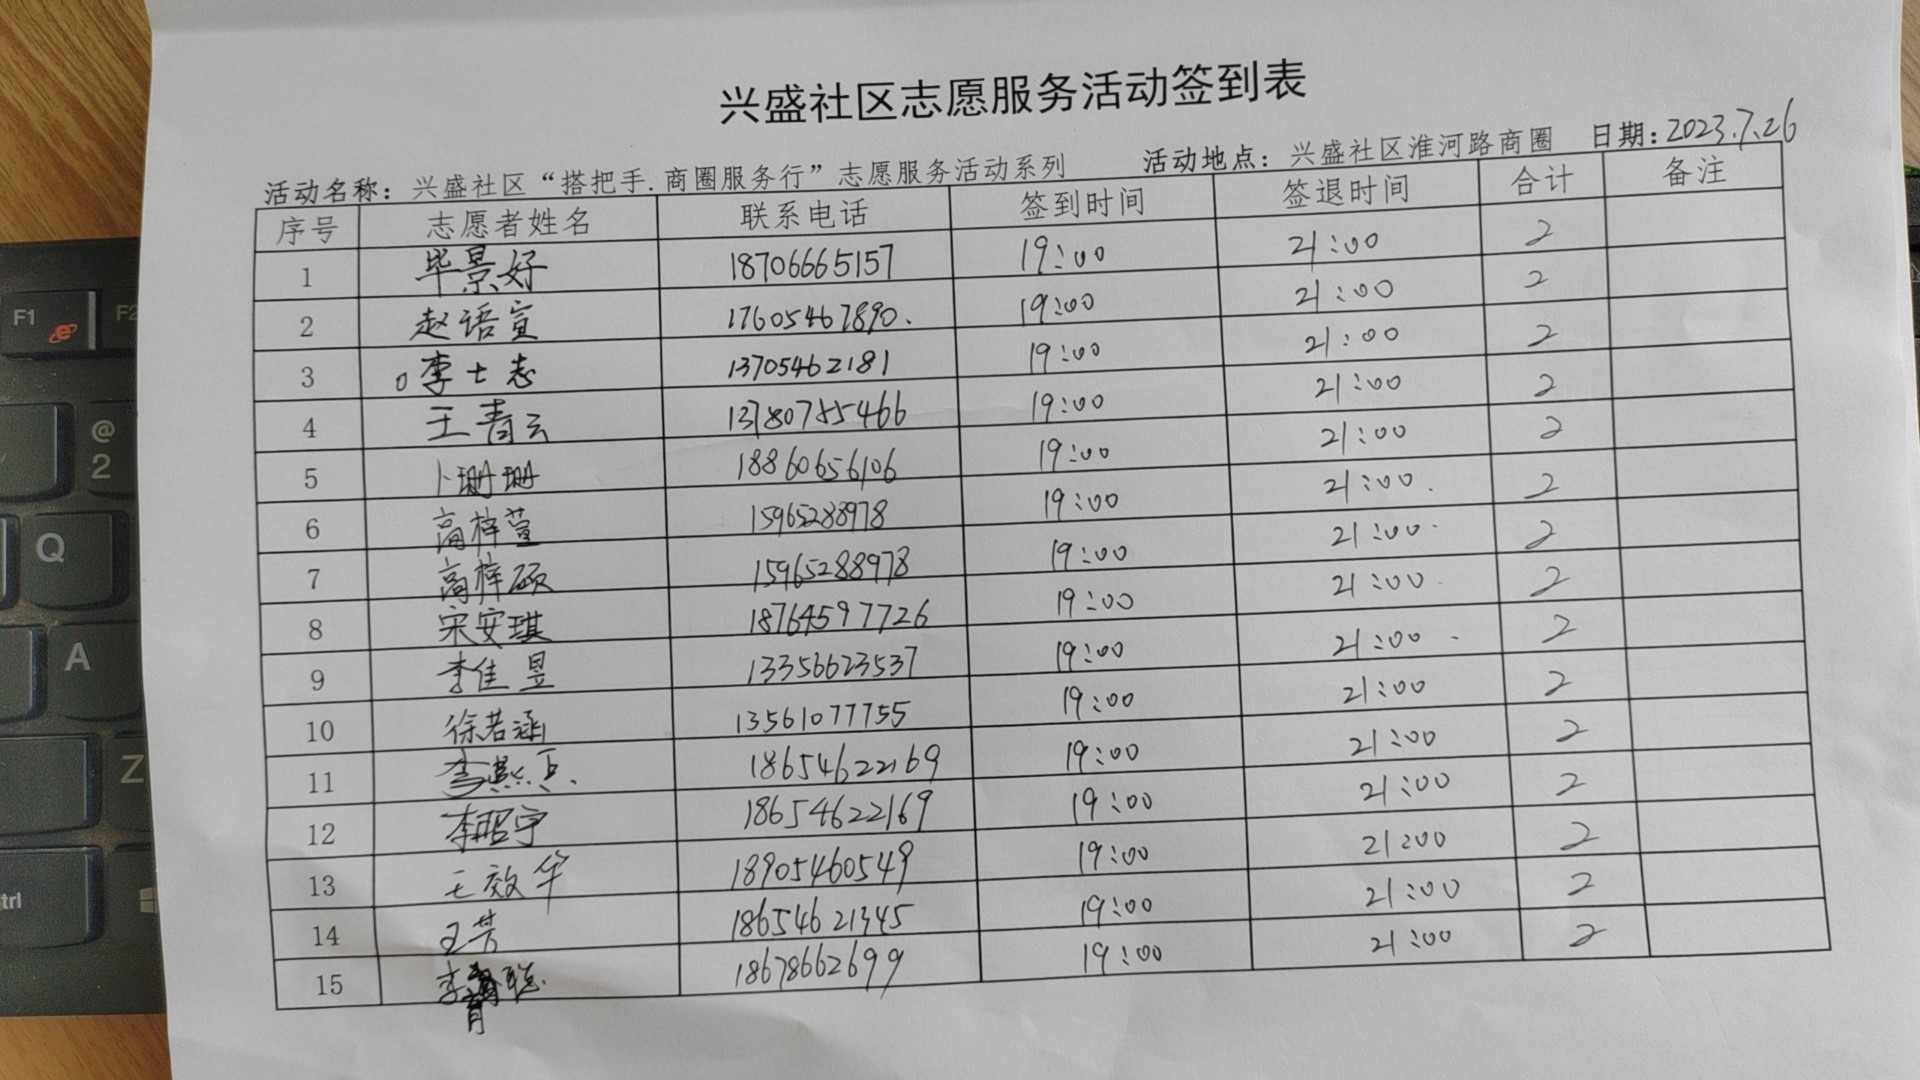 兴盛社区志愿服务活动签到表
活动名称：兴盛社区“搭把手.商圈服务行”志愿服务活动系列 活动地点：兴盛社区淮河路商圈 日期：2023.7.26
序号 志愿者姓名 联系电话 签到时间 签退时间 合计 备注
1 毕景好 18706665157 19:00 21:00 2
2 赵语宣 17605467890. 19:00 21:00 2
3 李士志 13705462181 19:00 21:00 2
4 王青云 13780755466 19:00 21:00 2
5 卜珊珊 18860656106 19:00 21:00 2
6 高梓萱 15965288978 19:00 21:00. 2
7 高梓硕 15965288978 19:00 21:00. 2
8 宋安琪 18764597726 19:00 21:00. 2
9 李佳昱 13356623537 19:00 21:00 2
10 徐若涵 13561077755 19:00 21:00 2
11 18654622169 19:00 21:00 2
12 李昭宇 18654622169 19:00 21:00 2
13 王效华 18905460549 19:00 21:00 2
14 王芳 18654621345 19:00 21:00 2
15 李 聪 18678662699 19:00 21:00 2
F1
F2
@
2
Q
A
Z
trl